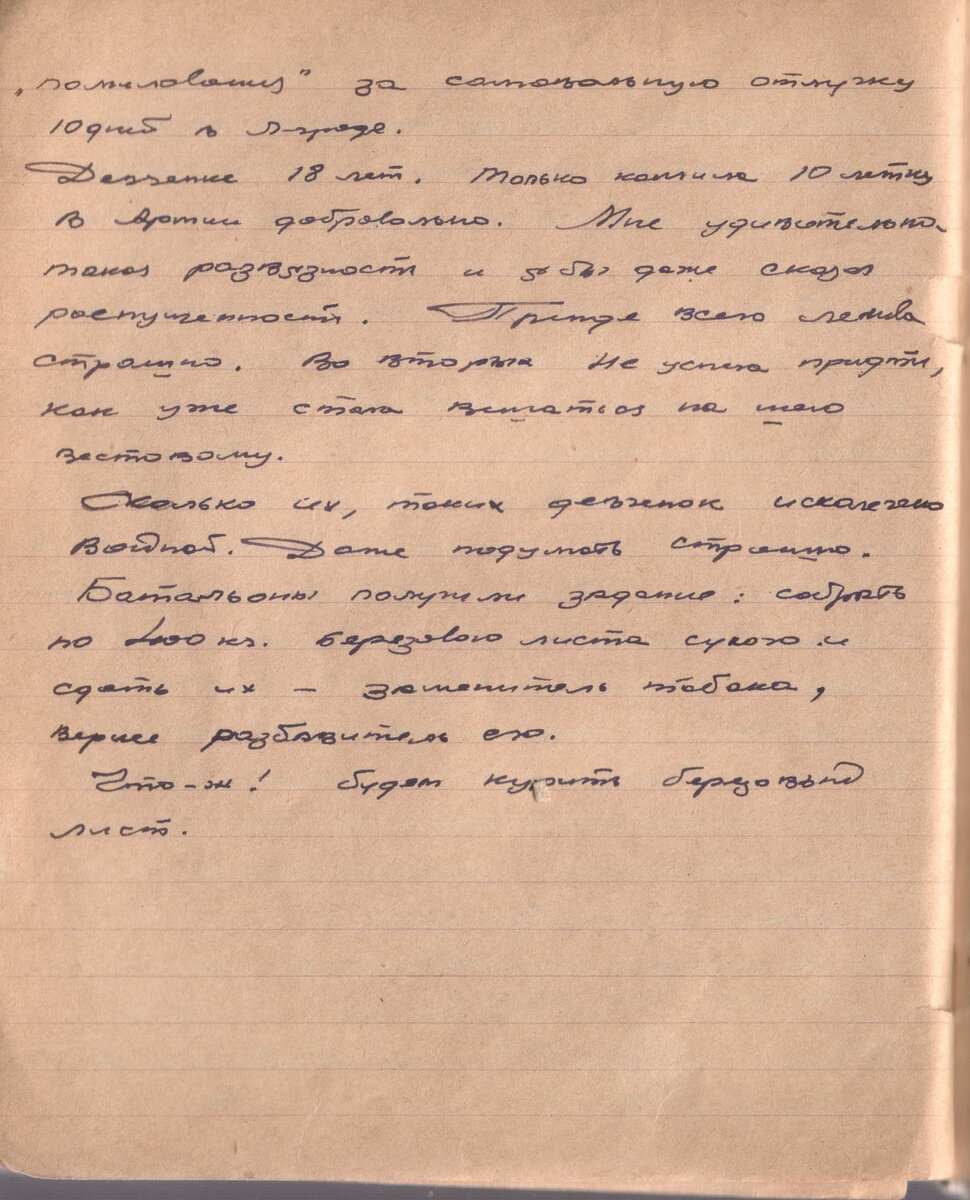 „помилования" за самовольную отлучку
10 дней в Л-граде.
Девченке 18 лет. Только кончила 10 летку
в Армии добровольно. Мне удивительно-
такая развязность и я бы даже сказал
распущенность. Прежде всего ленива
страшно. Во вторых не успела придти,
как уже стала вешаться на шею
вестовому.
Сколько их, таких девченок искалечено
Войной. Даже подумать страшно.
Батальоны получили задание: собрать
по 400 кг. березового листа сухого и
сдать их – заменитель табака,
вернее разбавитель его.
Что-ж! будем курить березовый
лист.